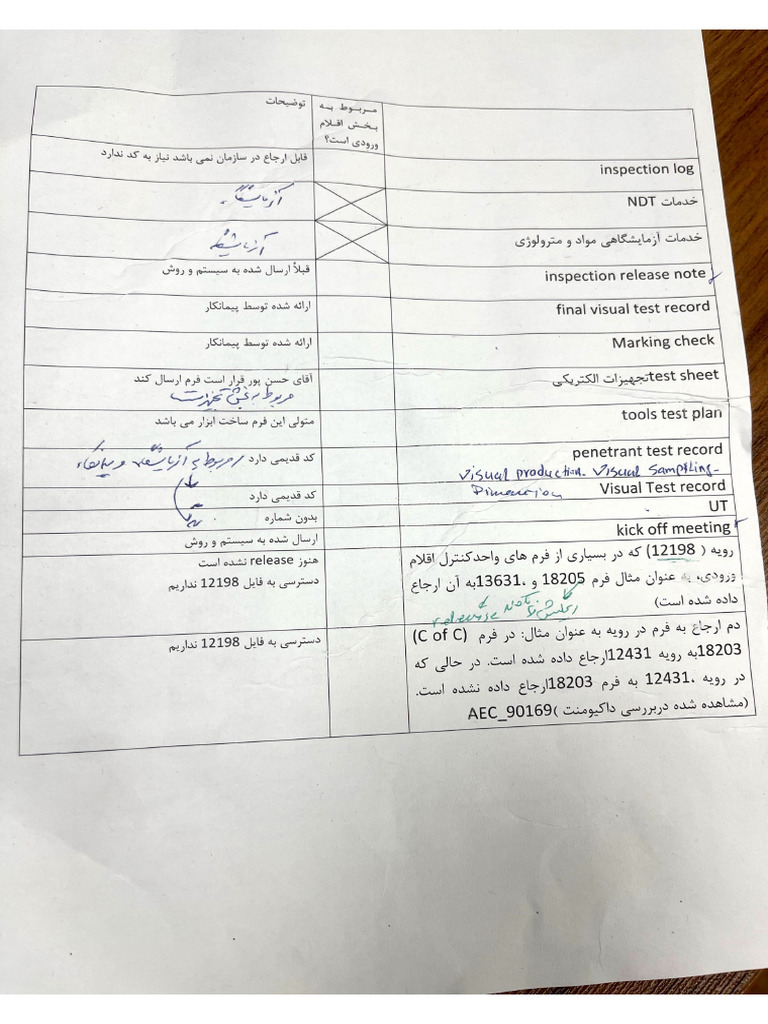 مربوط به بخش اقلام ورودی است؟
توضیحات
inspection log
قابل ارجاع در سازمان نمی باشد نیاز به کد ندارد
خدمات NDT
آزمایشگاه
خدمات آزمایشگاهی مواد و مترولوژی
آزمایشگاه
inspection release note
قبلاً ارسال شده به سیستم و روش
final visual test record
ارائه شده توسط پیمانکار
Marking check
ارائه شده توسط پیمانکار
test sheet تجهیزات الکتریکی
آقای حسن پور قرار است فرم ارسال کند
مربوط به بخش تجهیزات
tools test plan
متولی این فرم ساخت ابزار می باشد
penetrant test record
کد قدیمی دارد
مربوط به آزمایشگاه و
visual production - visual sampling -
Dimension
Visual Test record
کد قدیمی دارد
UT
بدون شماره
kick off meeting
ارسال شده به سیستم و روش
رویه ( 12198) که در بسیاری از فرم های واحدکنترل اقلام
ورودی، به عنوان مثال فرم 18205 و ،13631به آن ارجاع
داده شده است)
release
هنوز release نشده است
دسترسی به فایل 12198 نداریم
دم ارجاع به فرم در رویه به عنوان مثال: در فرم (C of C)
18203به رویه 12431ارجاع داده شده است. در حالی که
در رویه ،12431 به فرم 18203ارجاع داده نشده است.
(مشاهده شده دربررسی داکیومنت )AEC_90169
دسترسی به فایل 12198 نداریم